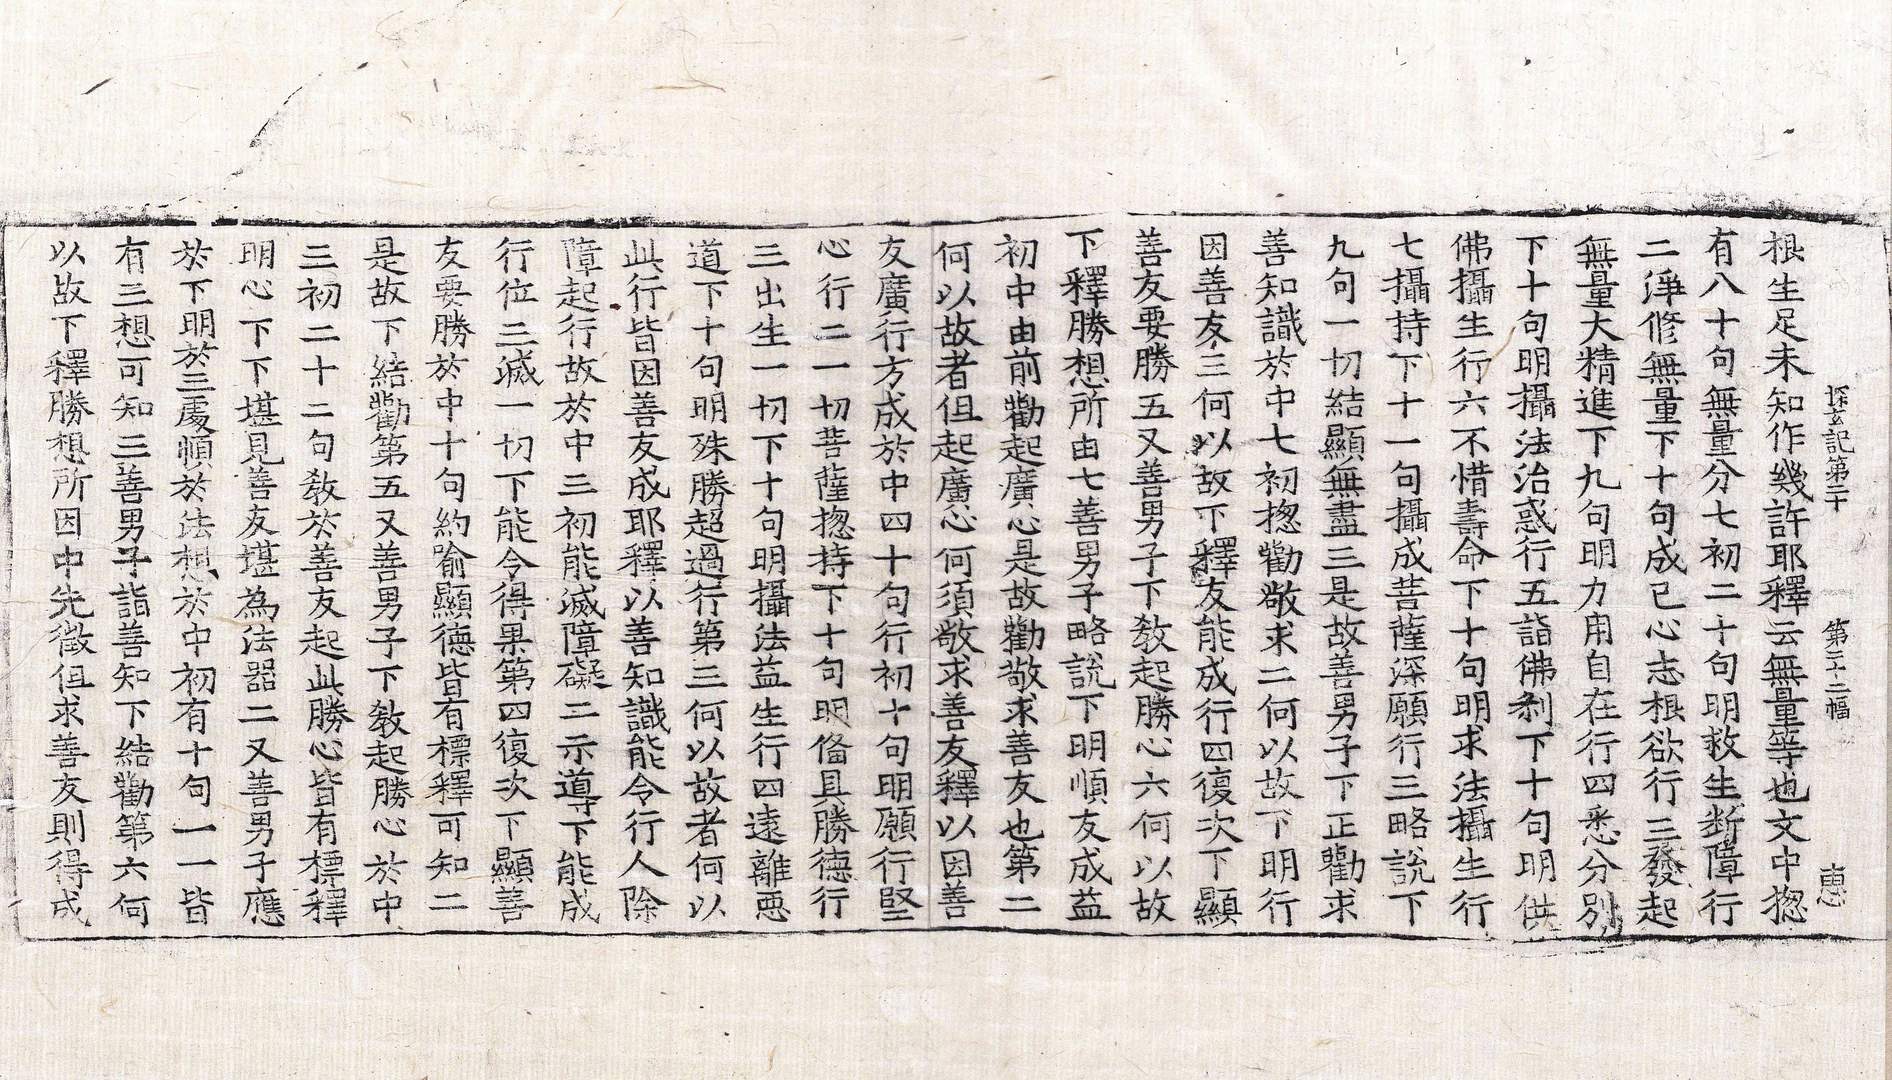 探玄記第二十 第二十二幅 惠
根生足未知作幾許耶釋云無量等也文中揔
有八十句無量分七初二十句明救生断障行
二淨修無量下十句成已心志根欲行三發起
無量大精進下九句明力用自在行四悉分別
下十句明攝法治惑行五詣佛剎下十句明供
佛攝生行六不惜壽命下十句明求法攝生行
七攝持下十一句攝成菩薩深願行三略說下
九句一切結顯無盡三是故善男子下正勸求
善知識於中七初揔勸敬求二何以故下明行
因善友三何以故下釋友能成行四復次下顯
善友要勝五又善男子下教起勝心六何以故
下釋勝想所由七善男子略說下明順友成益
初中由前勸起廣心是故勸敬求善友也第二
何以故者伹起廣心何須敬求善友釋以因善
友廣行方成於中四十句行初十句明願行堅
心行二一切菩薩揔持下十句明俻具勝德行
三出生一切下十句明攝法益生行四遠離惡
道下十句明殊勝超過行第三何以故者何以
此行皆因善友成耶釋以善知識能令行人除
障起行故於中三初能滅障礙二示導下能成
行位三滅一切下能令得果第四復次下顯善
友要勝於中十句約喻顯德皆有標釋可知二
是故下結勸第五又善男子下教起勝心於中
三初二十二句教於善友起此勝心皆有標釋
明心下下堪見善友堪為法器二又善男子應
於下明於三處順於法想於中初有十句一一皆
有三想可知三善男子詣善知下結勸第六何
以故下釋勝想所因中先徵伹求善友則得成